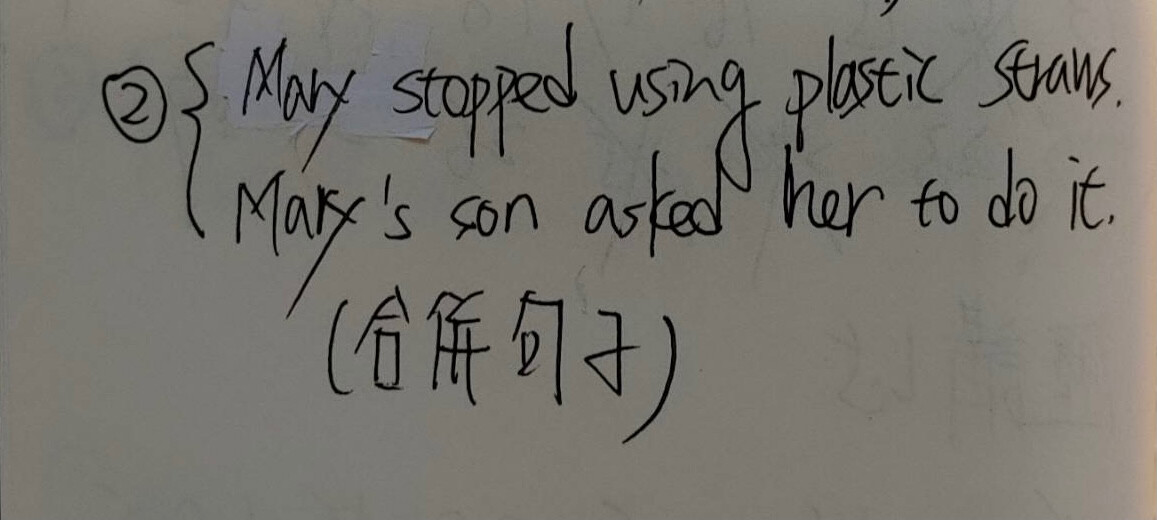 ② { Mary stopped using plastic straws.
Mary's son asked her to do it.
(合併句子)